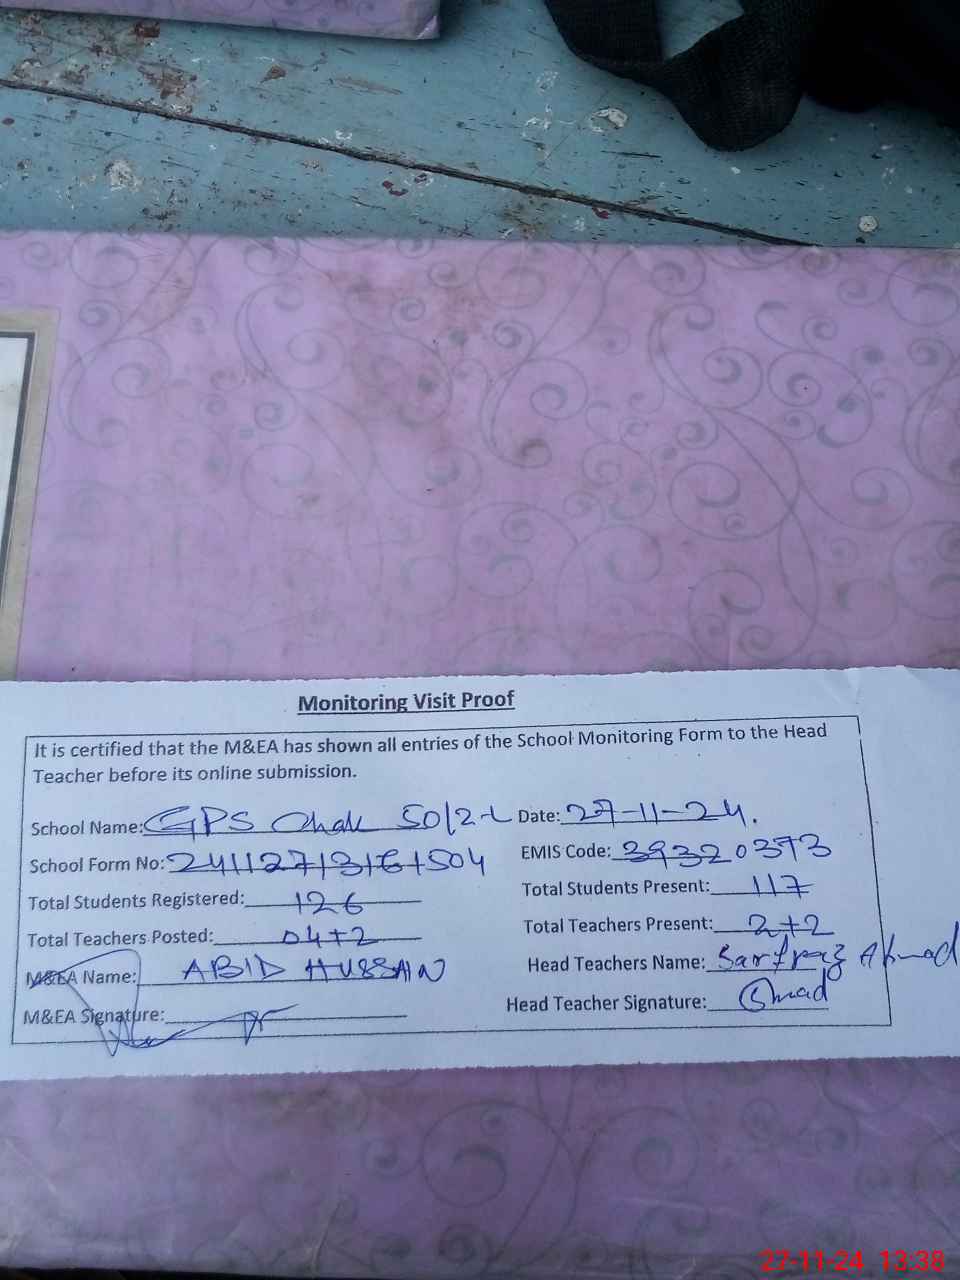 Monitoring Visit Proof
It is certified that the M&EA has shown all entries of the School Monitoring Form to the Head
Teacher before its online submission.
School Name: GPS Chak 50/2-L Date: 27-11-24.
School Form No: EMIS Code: 39320373
Total Students Registered: 126 Total Students Present: 117
Total Teachers Posted: 04+2 Total Teachers Present: 2+2
M&EA Name: ABID HUSSAIN Head Teachers Name: Sarfraz Ahmad
M&EA Signature: Head Teacher Signature:
27-11-24 13:38